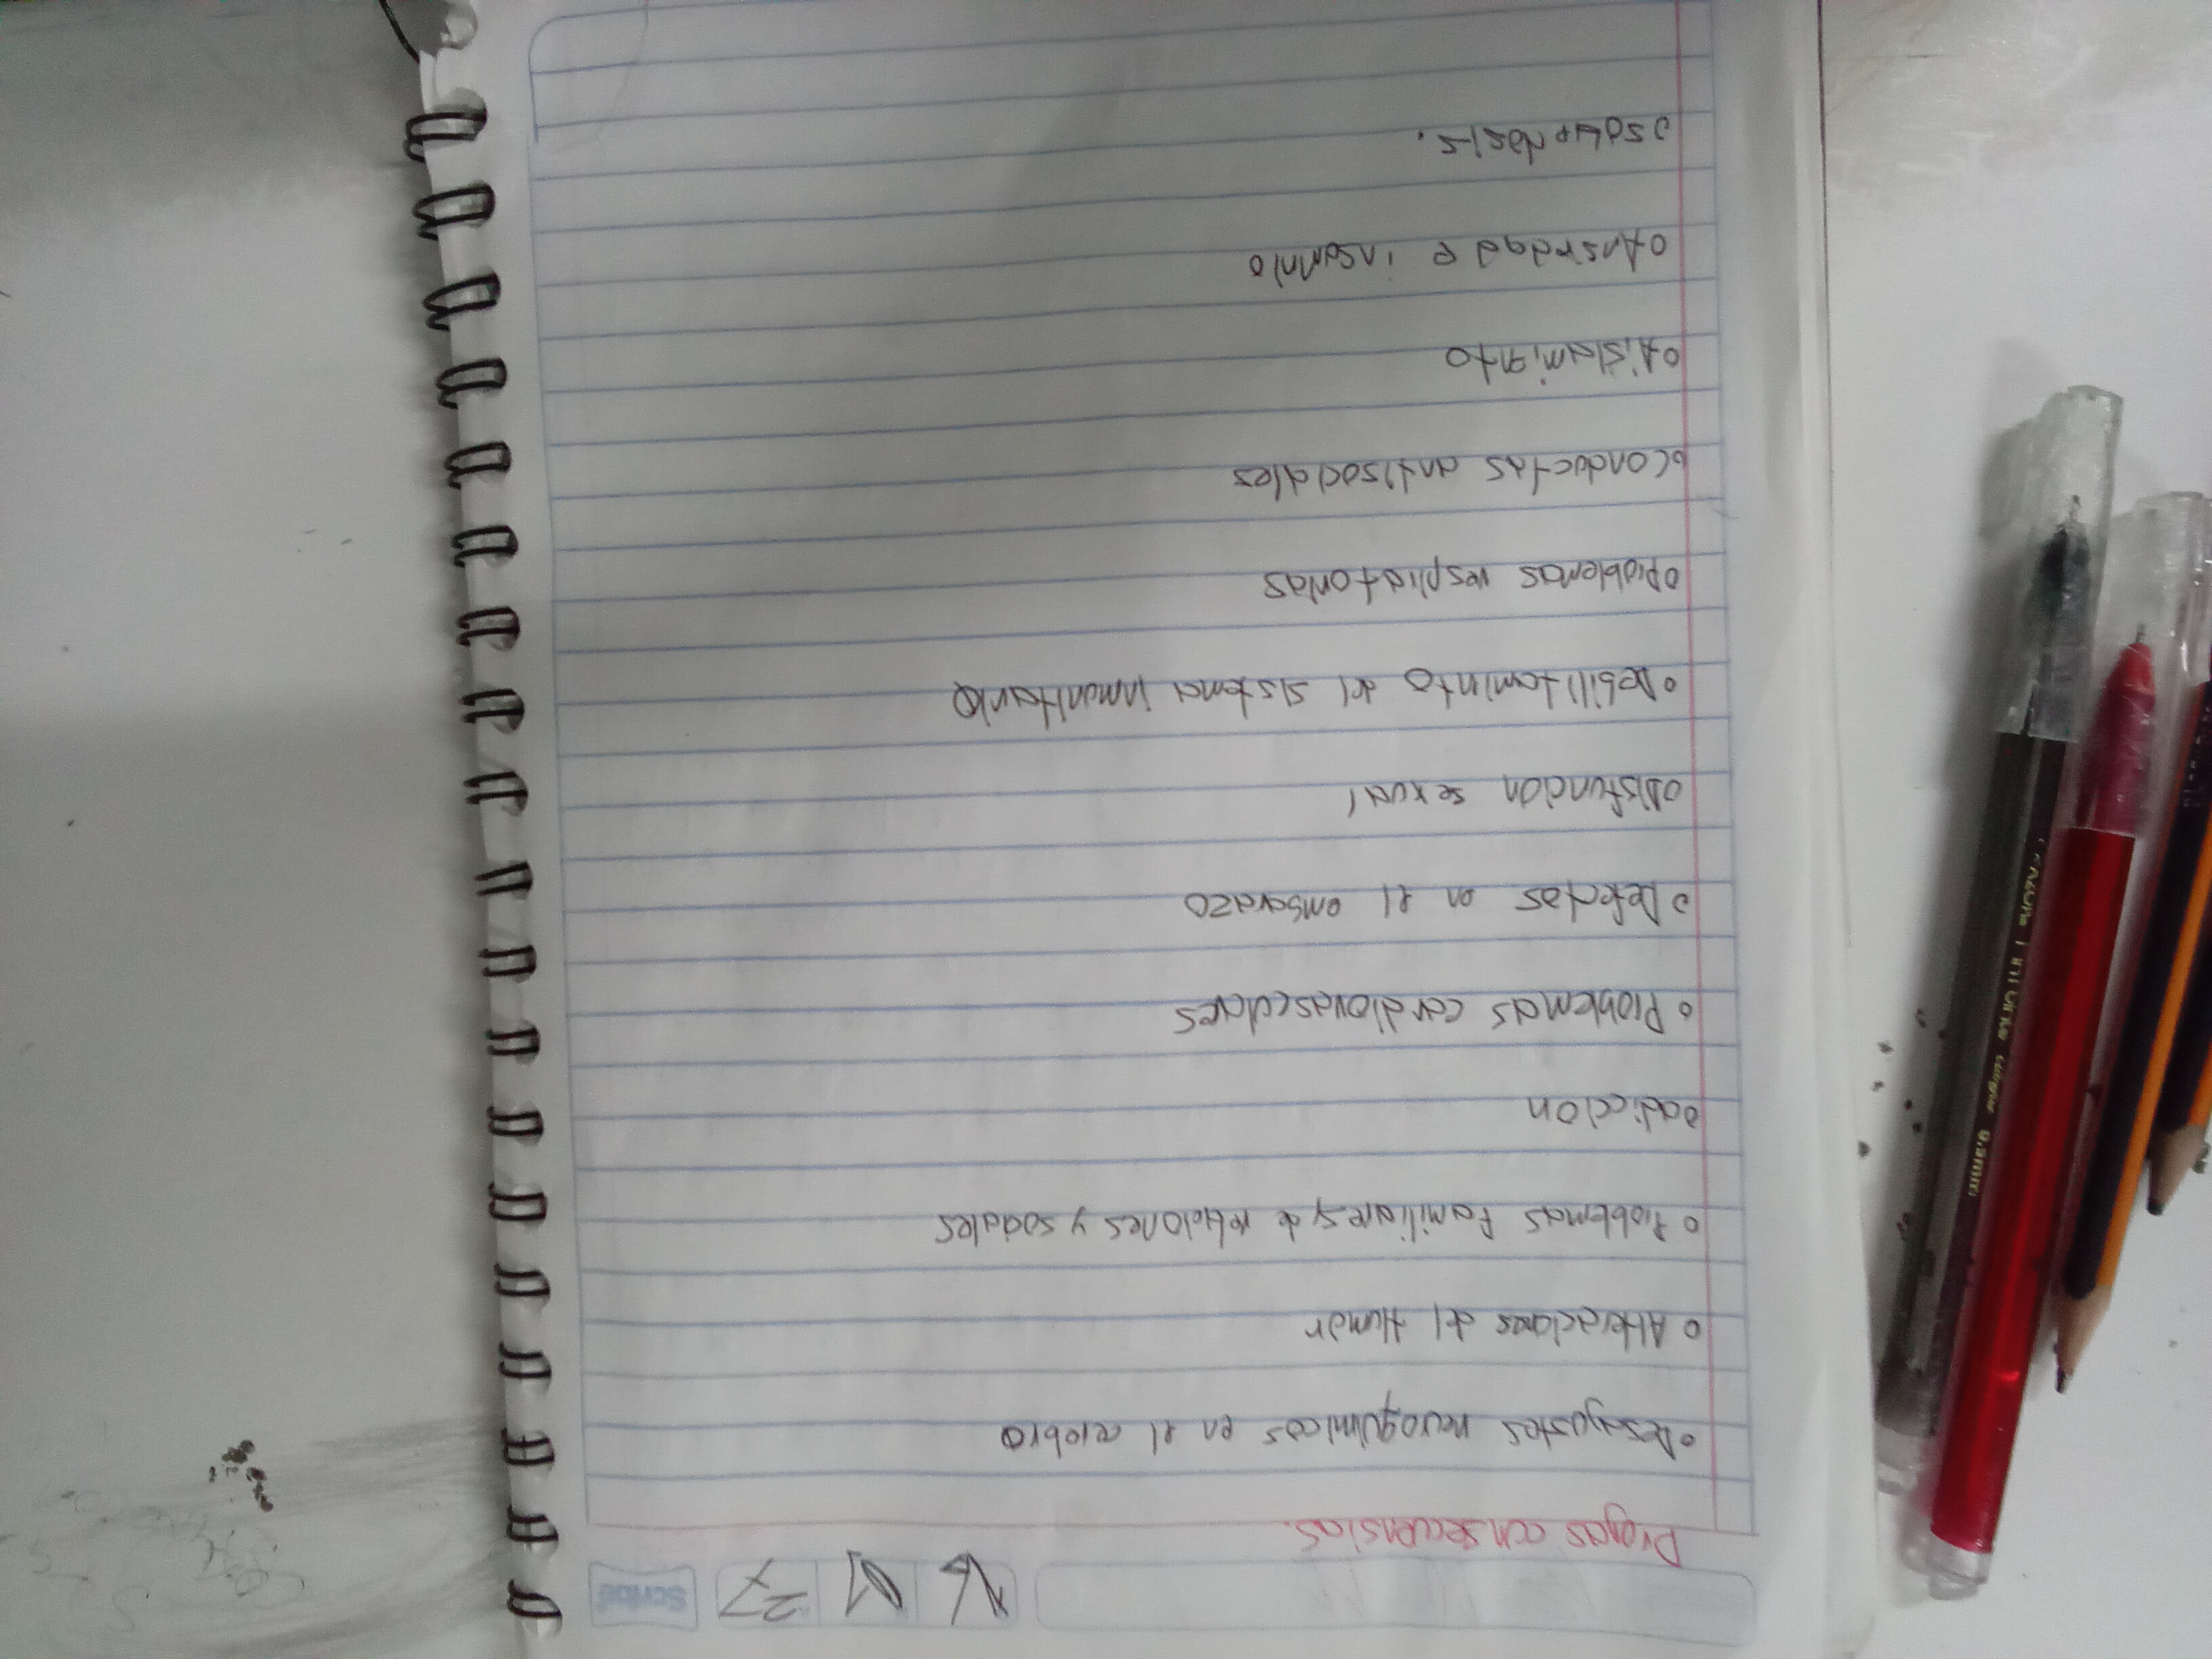 Scribe
Drogas consecuensias.
Desajustes neuroquimicos en el celebro
Alteraciones del Humor
Problemas Familiares y de relaciones y sociales
adiccion
Problemas cardiovasculares
Defectos en el embarazo
Disfuncion sexual
Debilitaminto del sistema
Problemas respiratorias
Conductas antisociales
Aislamiento
Ansidad e insomnio